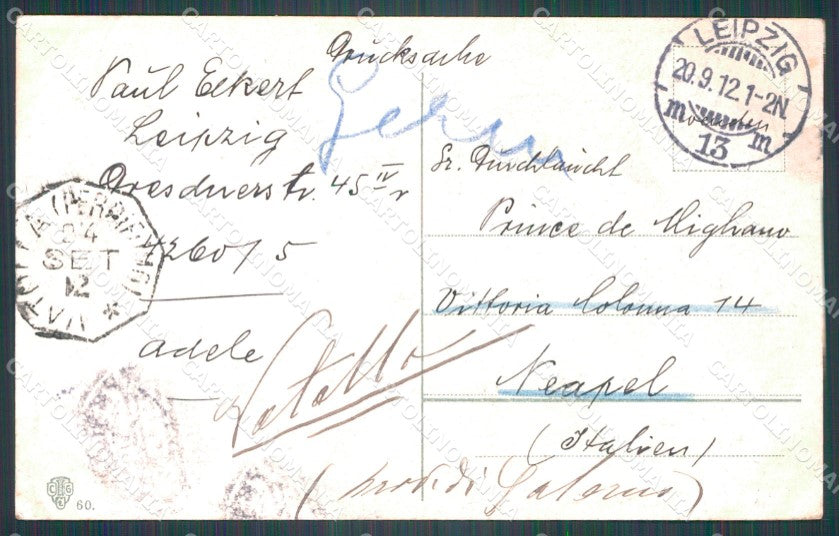 Drucksache
Paul Eckert
Leipzig
Dresdnerstr. 45 IV r
4260/5
adele
LEIPZIG
20.9.12.1-2N.
m m
13
Sr. Durchlaucht
Prince de Mighano
Vittoria Colonna 14
Neapel
(Italien)
(prov. di Salerno)
24
SET
12
60.
CARTOLINOMANIA